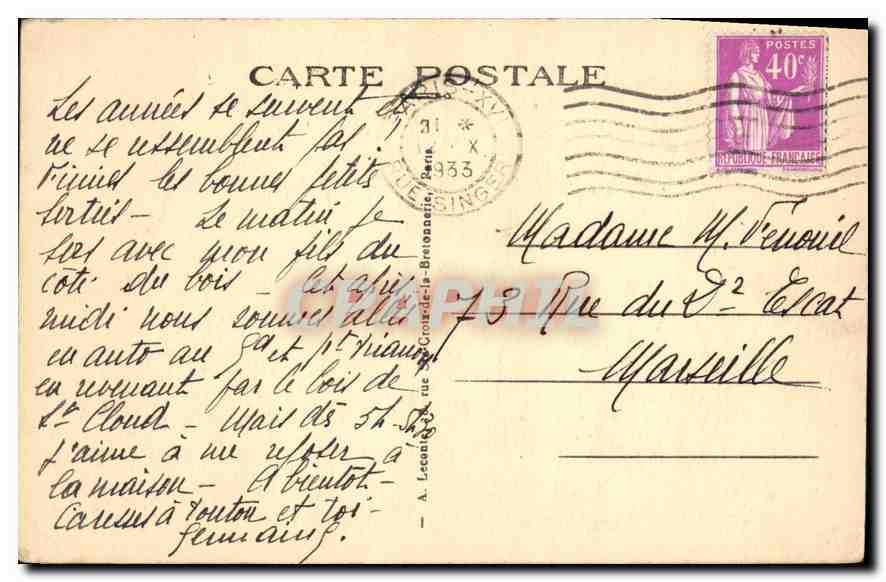 CARTE POSTALE
Les années se suivent et
ne se ressemblent pas !
Finies les bonnes petites
sorties - Le matin je
sors avec mon fils du
côté du bois - Cet après
midi nous sommes allés
en auto au Gd et Pt Trianon
en revenant par le bois de
St Cloud - Mais dès 5h - 5h½
j'aime à me reposer à
la maison - A bientôt -
Caresses à Tonton et toi -
Germaine.
— A. Leconte, rue Ste-Croix-de-la-Bretonnerie, Paris
PARIS-XVI
31 *
X
1933
RUE SINGER
POSTES
40c
REPUBLIQUE FRANÇAISE
Madame M. Fenouil
73 Rue du Dr Escat
Marseille
CPAPHIL